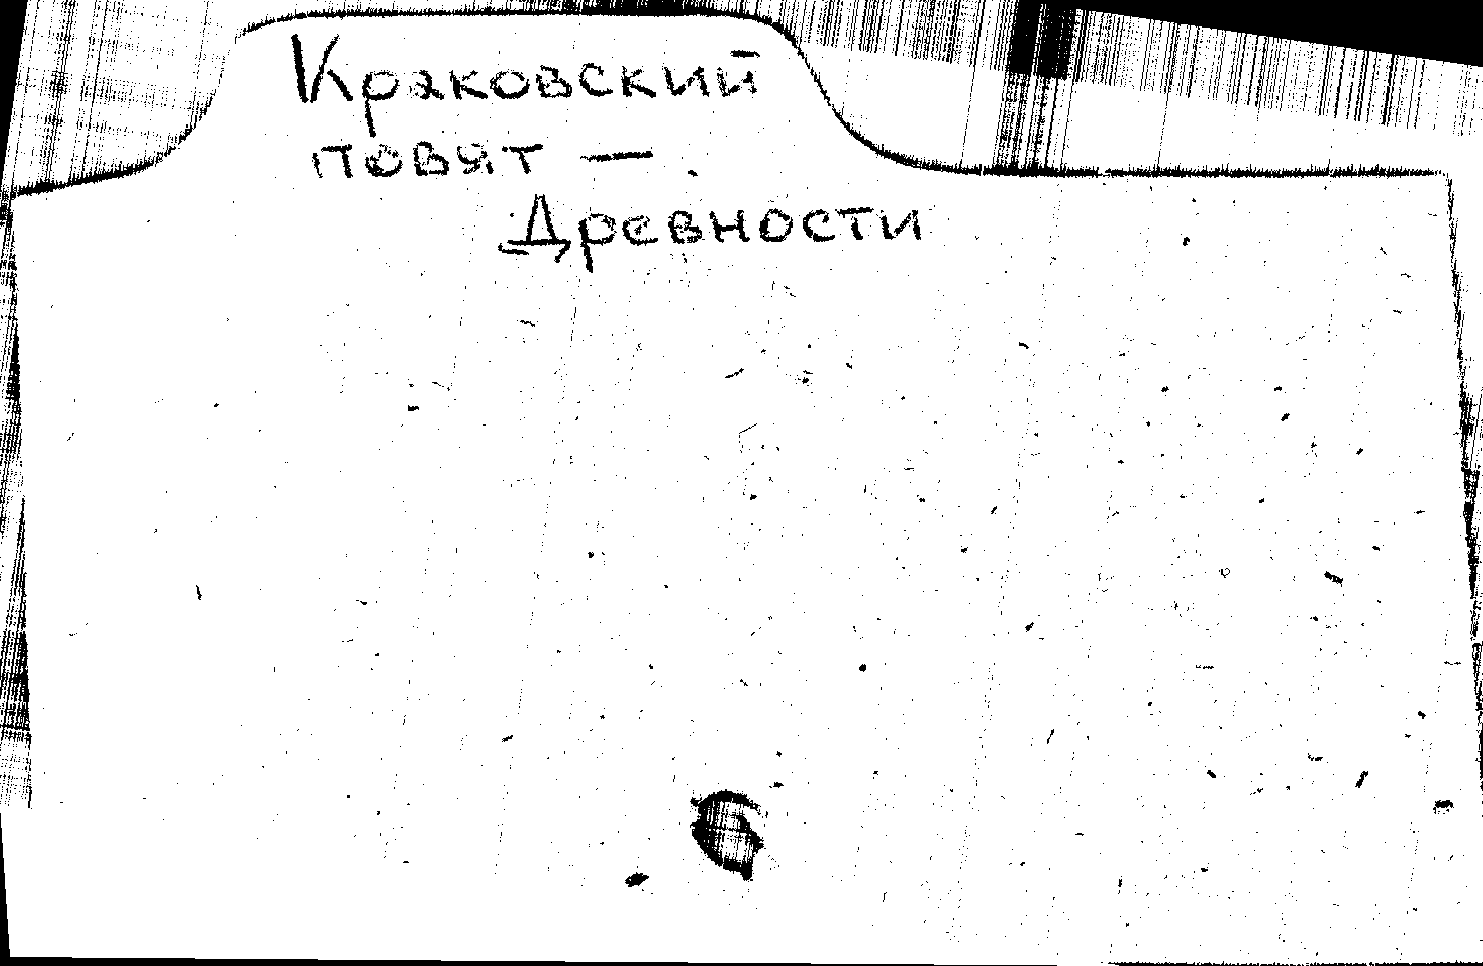 Краковский
повят —
Древности